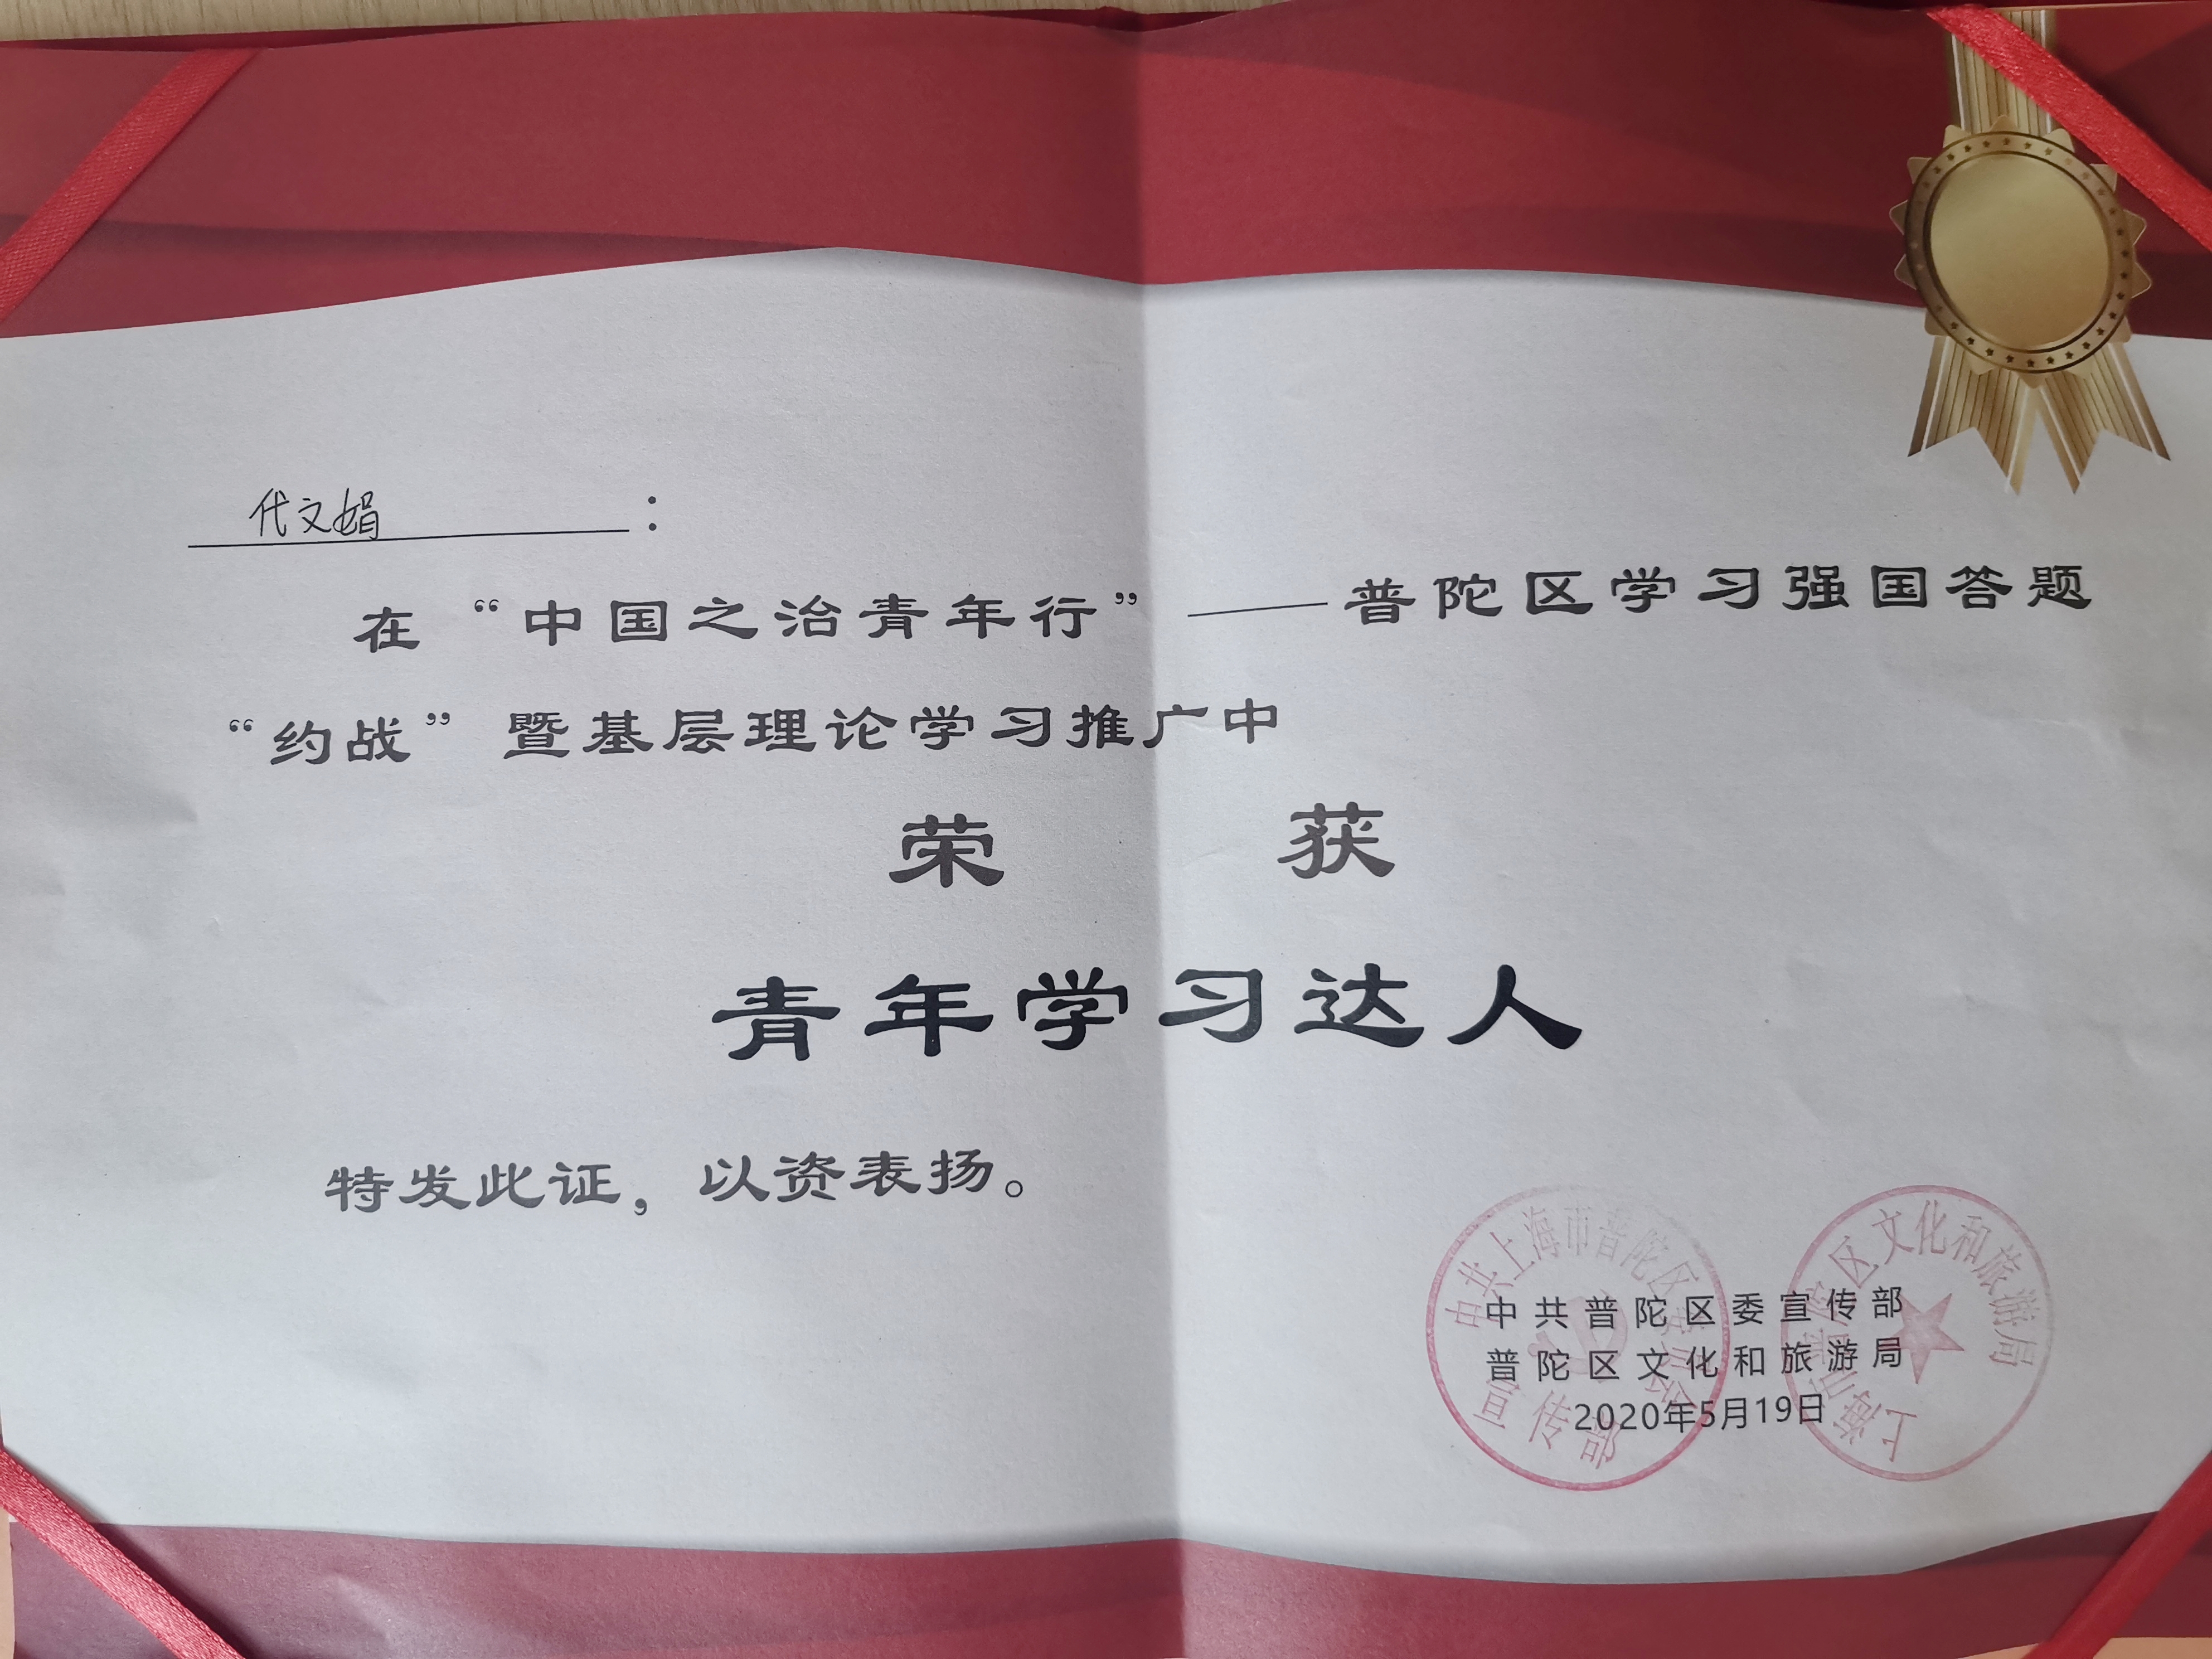 代文娟：
在“中国之治青年行”——普陀区学习强国答题
“约战”暨基层理论学习推广中
荣获
青年学习达人
特发此证，以资表扬。
中共普陀区委宣传部
普陀区文化和旅游局
2020年5月19日
中共上海市普陀区委员会
宣传部
上海市普陀区文化和旅游局